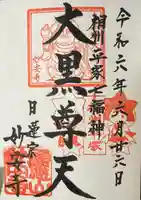 令和六年六月廿六日
相州平家七福神
大黒尊天
日蓮宗
妙善寺